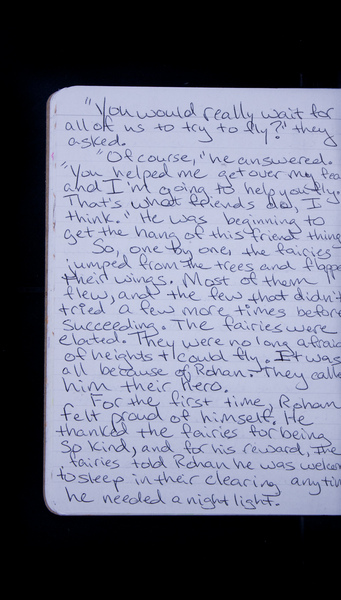 "You would really wait for
all of us to try to fly?" they
asked.
"Of course," he answered.
"You helped me get over my fea
and I'm going to help you fly.
That's what friends do, I
think." He was beginning to
get the hang of this friend thing
So, one by one, the fairies
jumped from the trees and flappe
their wings. Most of them
flew, and the few that didn't
tried a few more times before
succeeding. The fairies were
elated. They were no long afraid
of heights + could fly. It was
all because of Rohan. They calle
him their Hero.
For the first time, Rohan
felt proud of himself. He
thanked the fairies for being
so kind, and for his reward, the
fairies told Rohan he was welcom
to sleep in their clearing anytim
he needed a night light.